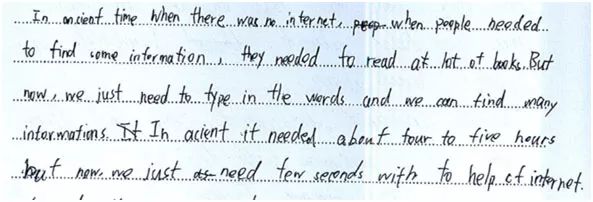 In ancient time when there was no internet, peop when people needed
to find some information, they needed to read at lot of books. But
now, we just need to type in the words and we can find many
informations. It In acient it needed about four to five hours
but now we just as need few seronds with to help of internet.